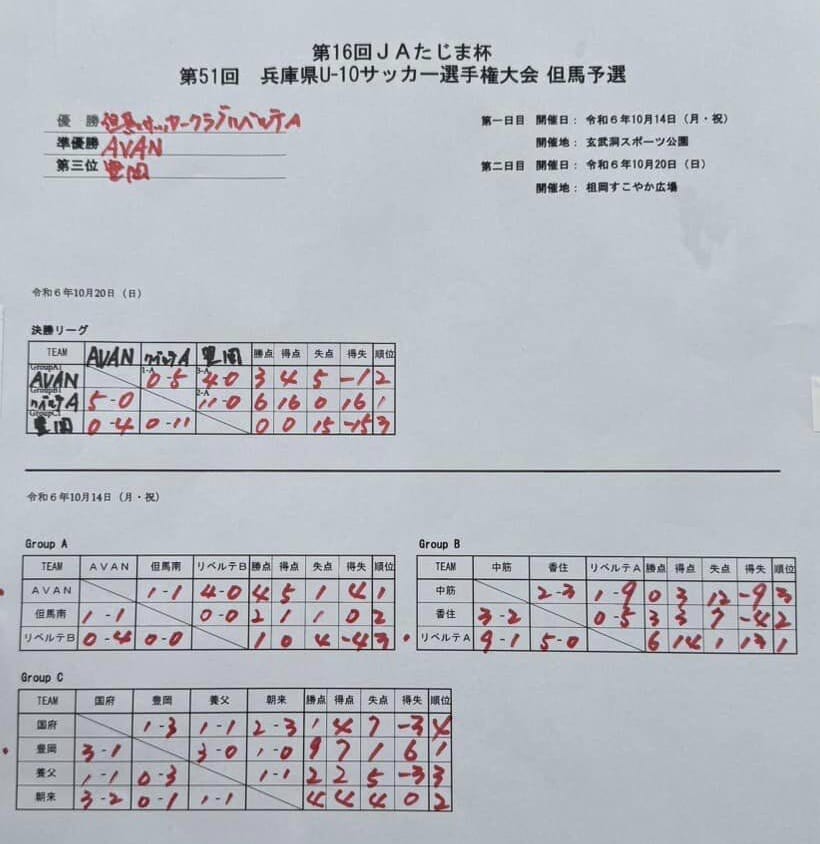 第16回JAたじま杯
第51回 兵庫県U-10サッカー選手権大会 但馬予選
優 勝 但馬サッカークラブリベルテA
準優勝 AVAN
第三位 豊岡
第一日目 開催日： 令和6年10月14日（月・祝）
開催地： 玄武洞スポーツ公園
第二日目 開催日： 令和6年10月20日（日）
開催地： 祖岡すこやか広場
令和6年10月20日（日）
決勝リーグ
TEAM AVAN リベルテA 豊岡 勝点 得点 失点 得失 順位
GroupA1 AVAN 1-A 0-5 3-A 4-0 3 4 5 -1 2
GroupB1 リベルテA 5-0 2-A 11-0 6 16 0 16 1
GroupC1 豊岡 0-4 0-11 0 0 15 -15 3
令和6年10月14日（月・祝）
Group A
TEAM AVAN 但馬南 リベルテB 勝点 得点 失点 得失 順位
AVAN 1-1 4-0 4 5 1 4 1
但馬南 1-1 0-0 2 1 1 0 2
リベルテB 0-4 0-0 1 0 4 -4 3
Group B
TEAM 中筋 香住 リベルテA 勝点 得点 失点 得失 順位
中筋 2-3 1-9 0 3 12 -9 3
香住 3-2 0-5 3 3 7 -4 2
リベルテA 9-1 5-0 6 14 1 13 1
Group C
TEAM 国府 豊岡 養父 朝来 勝点 得点 失点 得失 順位
国府 1-3 1-1 2-3 1 4 7 -3 4
豊岡 3-1 3-0 1-0 9 7 1 6 1
養父 1-1 0-3 1-1 2 2 5 -3 3
朝来 3-2 0-1 1-1 4 4 4 0 2